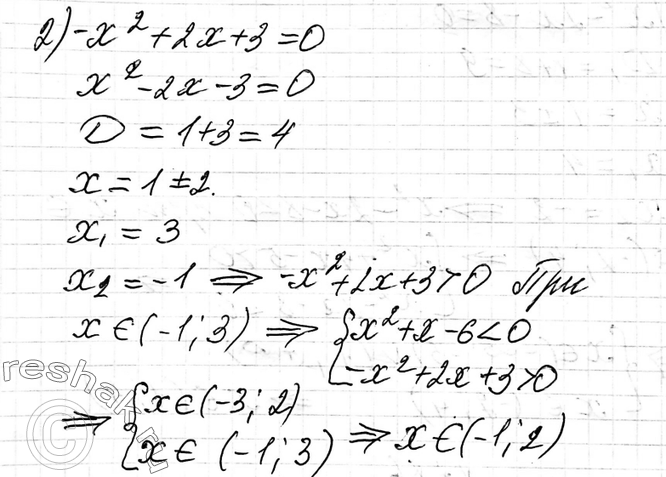 2) -x² + 2x + 3 = 0
x² - 2x - 3 = 0
D = 1 + 3 = 4
x = 1 ± 2.
x₁ = 3
x₂ = -1 ⇒ -x² + 2x + 3 > 0 При
x ∈ (-1; 3) ⇒ { x² + x - 6 < 0
-x² + 2x + 3 > 0
⇒ { x ∈ (-3; 2)
x ∈ (-1; 3) ⇒ x ∈ (-1; 2)
reshak